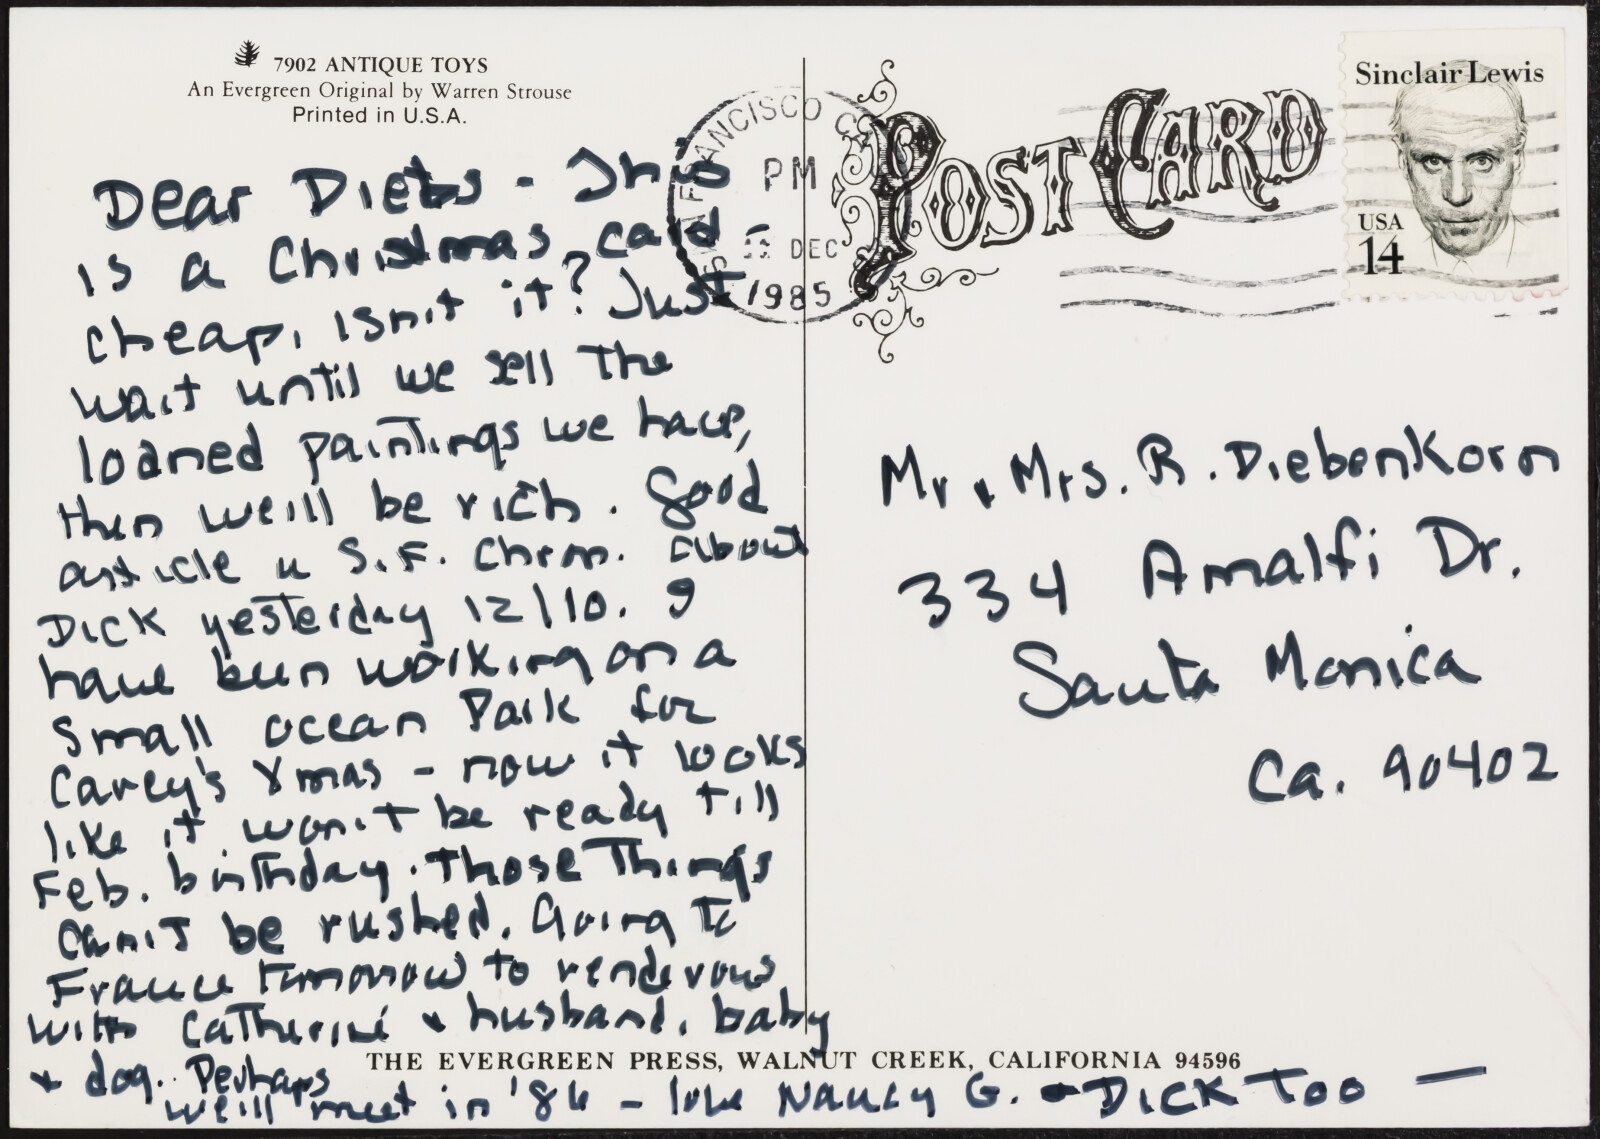 7902 ANTIQUE TOYS
An Evergreen Original by Warren Strouse
Printed in U.S.A.
Dear Diebs - This
is a Christmas card -
cheap, isn't it? Just
wait until we sell the
loaned paintings we have,
then we'll be rich. Good
article in S.F. Chron. about
Dick yesterday 12/10. I
have been working on a
small Ocean Park for
Carey's Xmas - now it looks
like it won't be ready till
Feb. birthday. Those Things
can't be rushed. Going to
France tomorrow to rendezvous
with Catherine & husband, baby
& dog. Perhaps
we'll meet in '86 - love Nancy G. - DICK TOO —
SAN FRANCISCO CA
PM
DEC
1985
POST CARD
Sinclair Lewis
USA
14
Mr & Mrs. R. Diebenkorn
334 Amalfi Dr.
Santa Monica
Ca. 90402
THE EVERGREEN PRESS, WALNUT CREEK, CALIFORNIA 94596